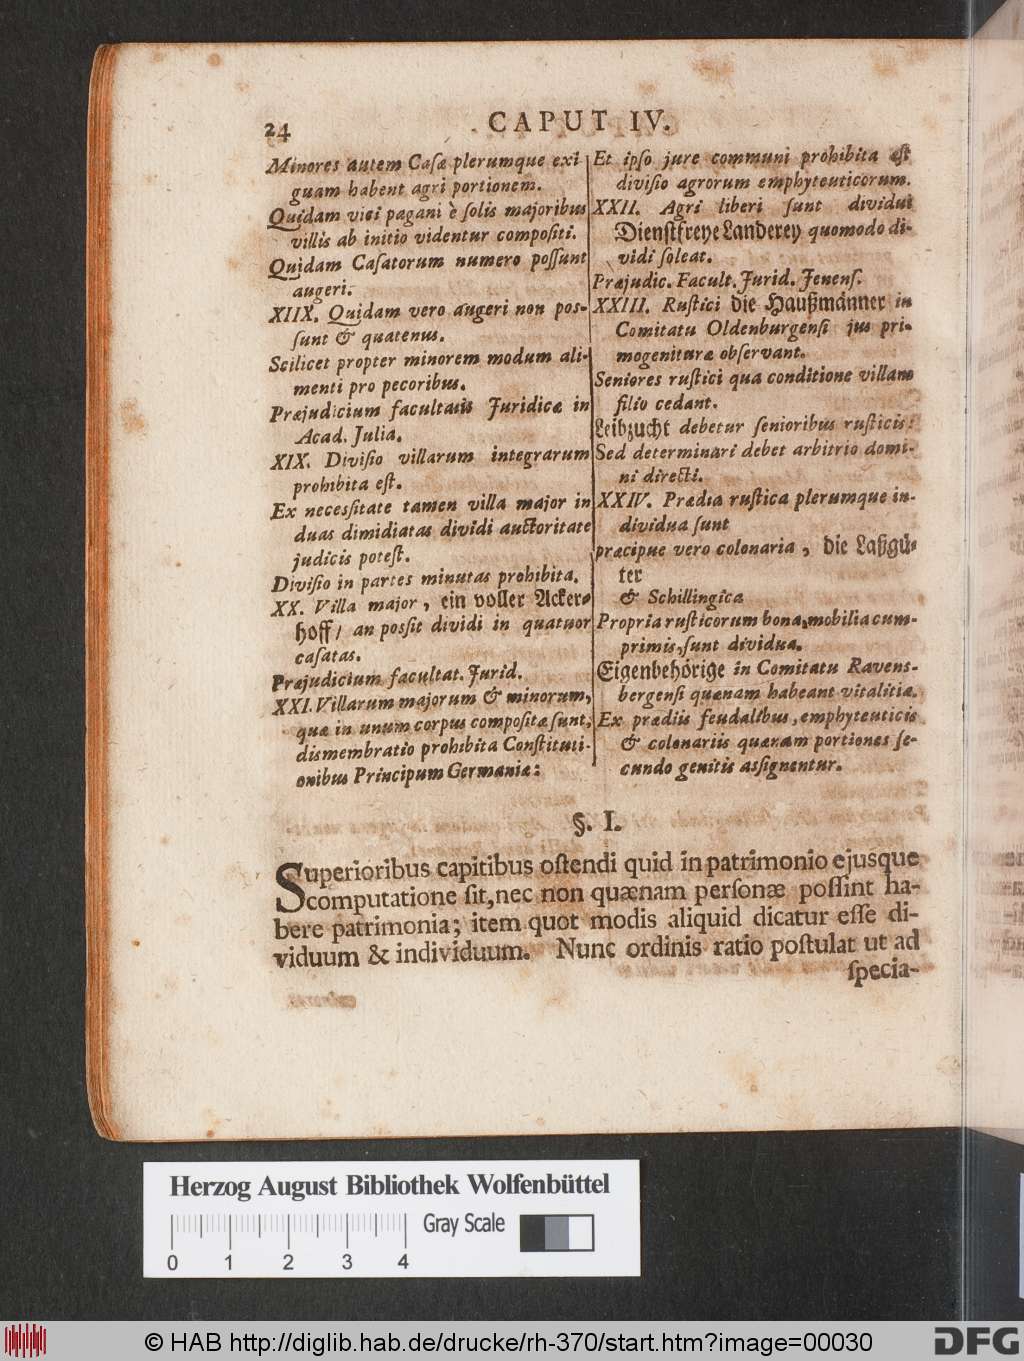 24
CAPUT IV.
Minores autem Casæ plerumque exi
guam habent agri portionem.
Quidam vici pagani è solis majoribus
villis ab initio videntur compositi.
Quidam Casatorum numero possunt
augeri.
XIIX. Quidam vero augeri non pos-
sunt & quatenus.
Scilicet propter minorem modum ali-
menti pro pecoribus.
Præjudicium facultatis Juridicæ in
Acad. Julia.
XIX. Divisio villarum integrarum
prohibita est.
Ex necessitate tamen villa major in
duas dimidiatas dividi auctoritate
judicis potest.
Divisio in partes minutas prohibita.
XX. Villa major, ein voller Acker-
hoff/ an possit dividi in quatuor
casatas.
Præjudicium facultat. Jurid.
XXI. Villarum majorum & minorum,
quæ in unum corpus compositæ sunt,
dismembratio prohibita Constituti-
onibus Principum Germaniæ:
Et ipso jure communi prohibita est
divisio agrorum emphyteuticorum.
XXII. Agri liberi sunt dividui
Dienstfreye Länderey quomodo di-
vidi soleat.
Præjudic. Facult. Jurid. Jenens.
XXIII. Rustici die Haußmänner in
Comitatu Oldenburgensi jus pri-
mogenituræ observant.
Seniores rustici qua conditione villam
filio cedant.
Leibzucht debetur senioribus rusticis:
Sed determinari debet arbitrio domi-
ni directi.
XXIV. Prædia rustica plerumque in-
dividua sunt
præcipue vero colonaria, die Laßgü-
ter
& Schillingica
Propria rusticorum bona, mobilia cum-
primis, sunt dividua.
Eigenbehörige in Comitatu Ravens-
bergensi quænam habeant vitalitia.
Ex prædiis feudalibus, emphyteuticis
& colonariis quænam portiones se-
cundo genitis assignentur.
§. I.
Superioribus capitibus ostendi quid in patrimonio ejusque
computatione sit, nec non quænam personæ possint ha-
bere patrimonia; item quot modis aliquid dicatur esse di-
viduum & individuum. Nunc ordinis ratio postulat ut ad
specia-
Herzog August Bibliothek Wolfenbüttel
Gray Scale
0 1 2 3 4
© HAB http://diglib.hab.de/drucke/rh-370/start.htm?image=00030
DFG